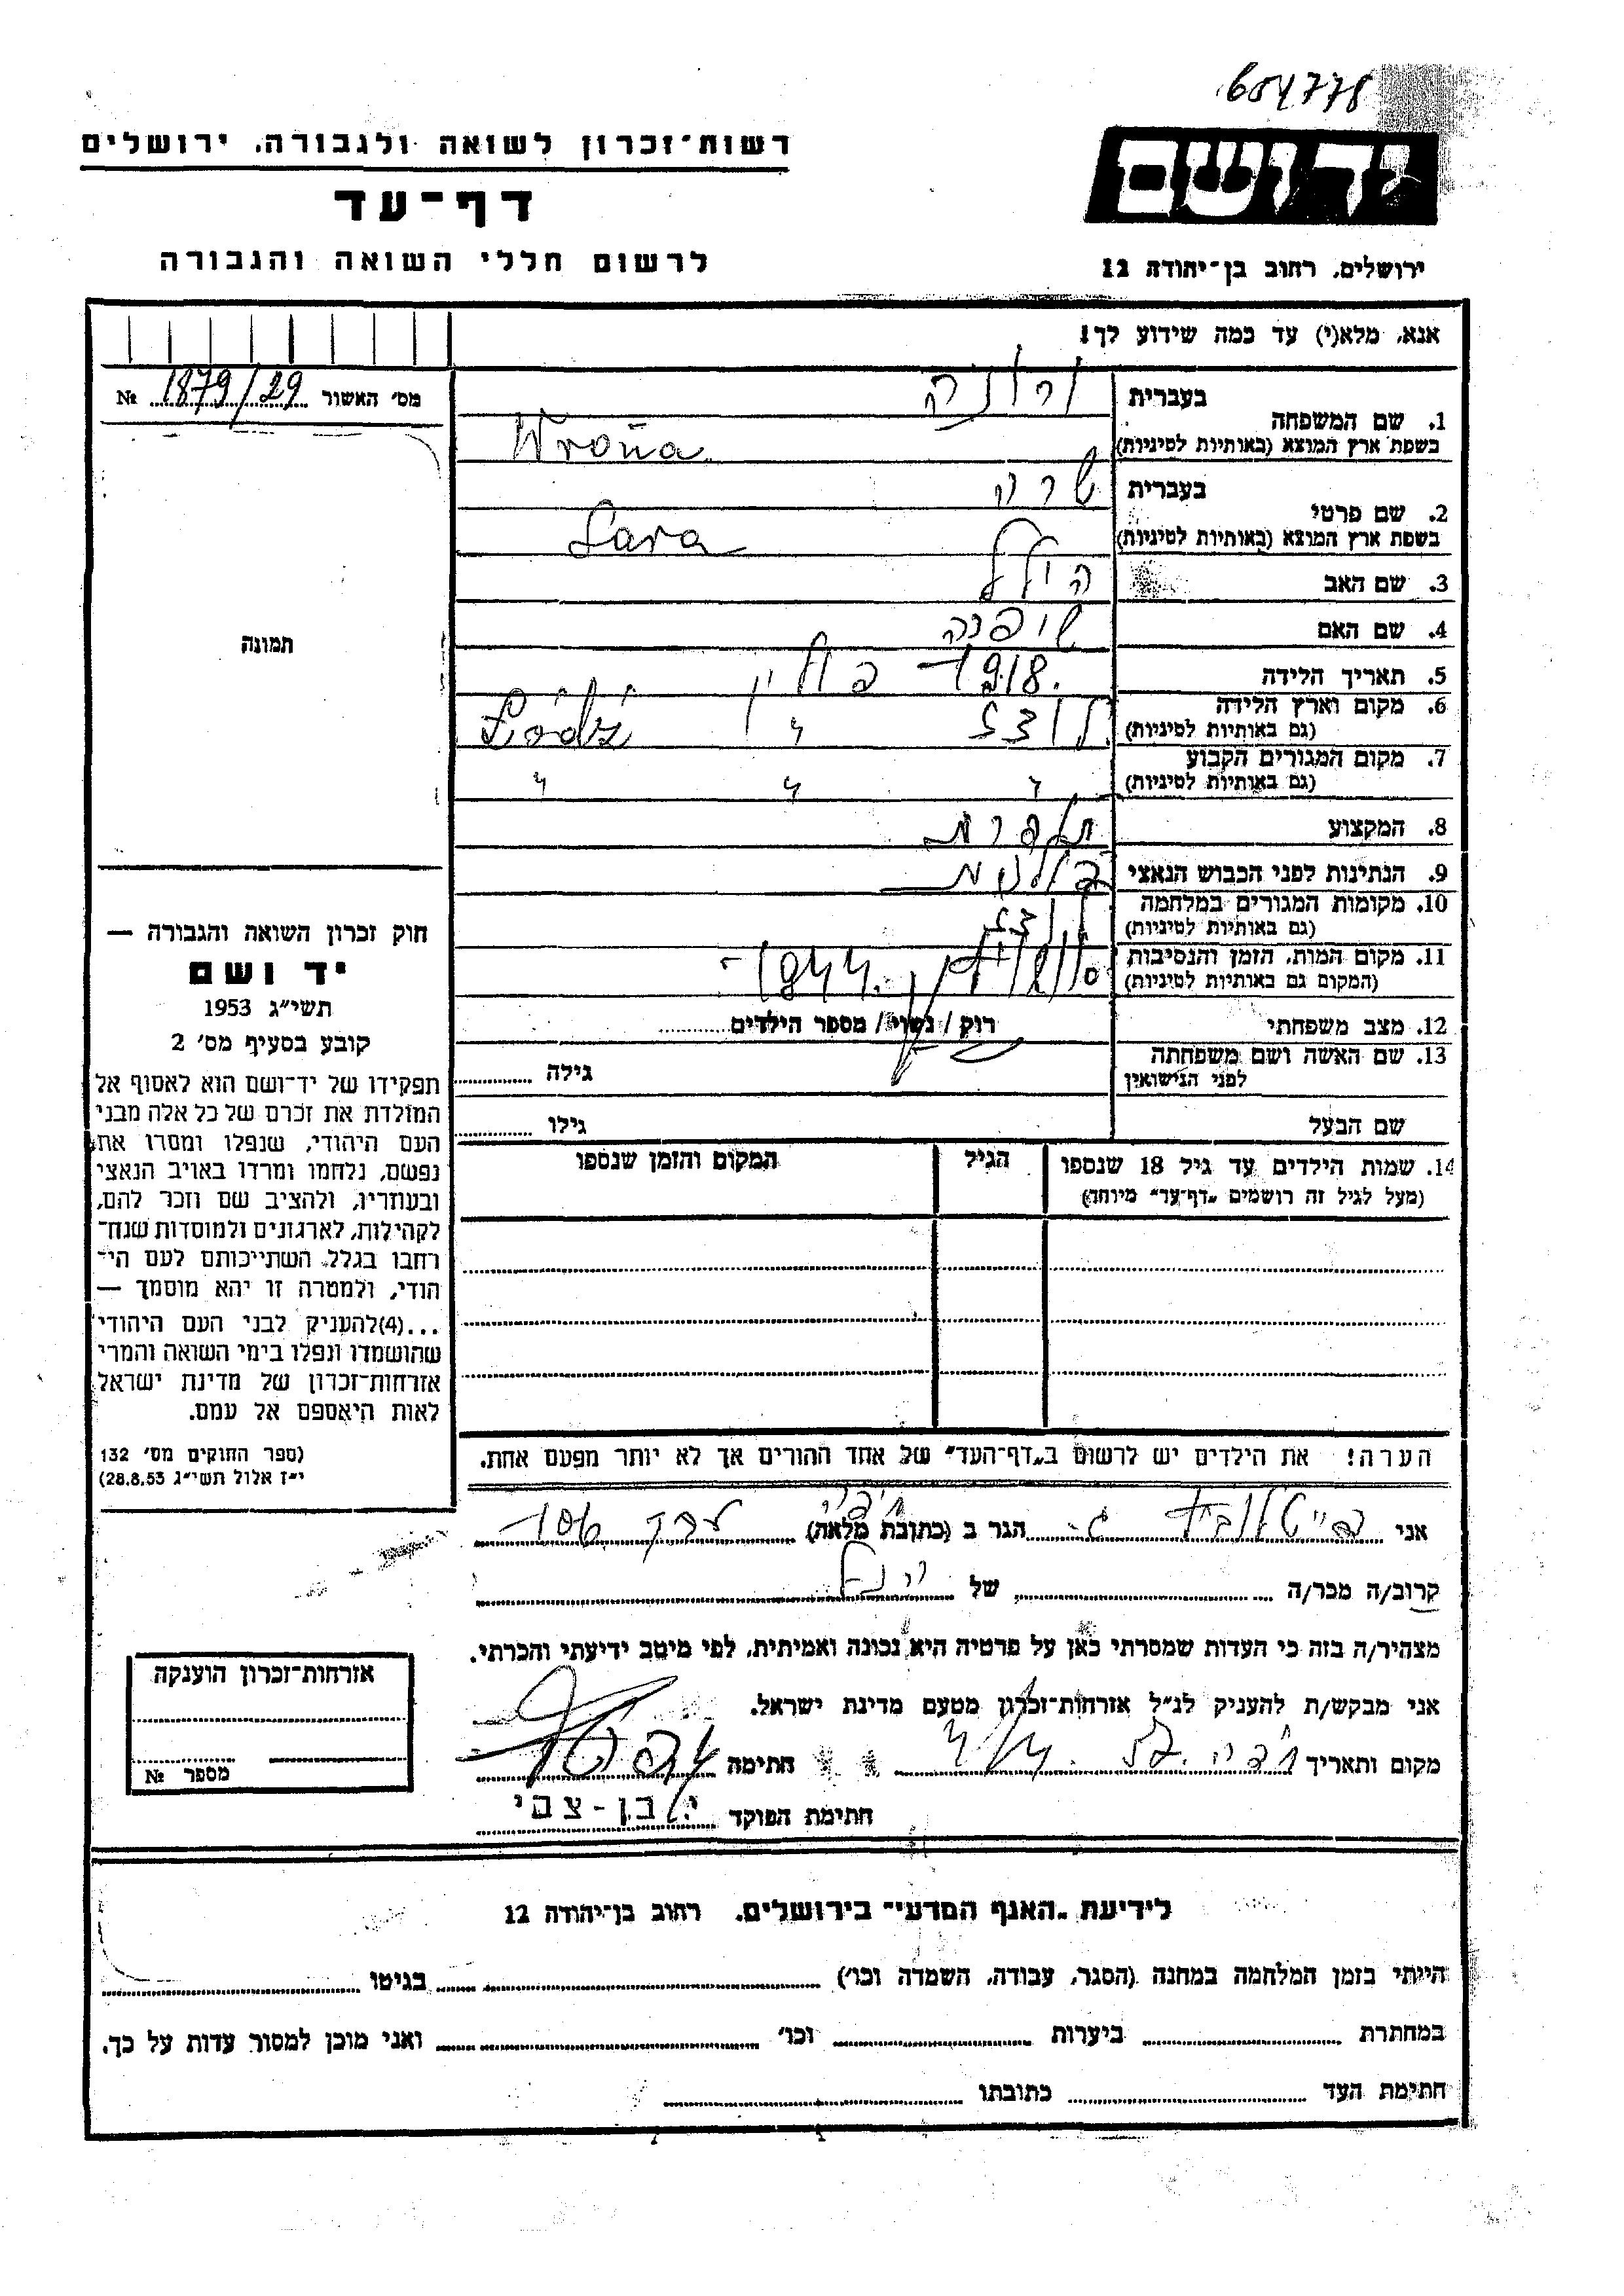 604778
רשות־זכרון לשואה ולגבורה, ירושלים
דף־עד
לרשום חללי השואה והגבורה
ידושם
ירושלים, רחוב בן־יהודה 12
אנא, מלא(י) עד כמה שידוע לך!
מס׳ האשור 1879/29 №
תמונה
בעברית ורונה
1. שם המשפחה
בשפת ארץ המוצא (באותיות לטיניות) Wrona
בעברית שרה
2. שם פרטי
בשפת ארץ המוצא (באותיות לטיניות) Sara
3. שם האב הילל
4. שם האם
5. תאריך הלידה 1918
6. מקום וארץ הלידה לודז פולין Łódź
(גם באותיות לטיניות)
7. מקום המגורים הקבוע " " "
(גם באותיות לטיניות)
8. המקצוע תופרת
9. הנתינות לפני הכבוש הנאצי פולנית
10. מקומות המגורים במלחמה לודז
(גם באותיות לטיניות)
11. מקום המות, הזמן והנסיבות 1944
(המקום גם באותיות לטיניות)
12. מצב משפחתי רוק / נשוי / מספר הילדים
13. שם האשה ושם משפחתה
לפני הנישואין גילה
שם הבעל גילו
14. שמות הילדים עד גיל 18 שנספו הגיל המקום והזמן שנספו
(מעל לגיל זה רושמים „דף־עד״ מיוחד)
חוק זכרון השואה והגבורה —
יד ושם
תשי״ג 1953
קובע בסעיף מס׳ 2
תפקידו של יד־ושם הוא לאסוף אל
המולדת את זכרם של כל אלה מבני
העם היהודי, שנפלו ומסרו את
נפשם, נלחמו ומרדו באויב הנאצי
ובעוזריו, ולהציב שם וזכר להם,
לקהילות, לארגונים ולמוסדות שנח־
רחבו בגלל השתייכותם לעם הי־
הודי, ולמטרה זו יהא מוסמך —
...(4)להעניק לבני העם היהודי
שהושמדו ונפלו בימי השואה והמרי
אזרחות־זכרון של מדינת ישראל
לאות היאספם אל עמם.
(ספר החוקים מס׳ 132
י״ז אלול תשי״ג 28.8.53)
הערה! את הילדים יש לרשום ב„דף־העד״ של אחד ההורים אך לא יותר מפעם אחת.
אני הגר ב (כתובת מלאה)
קרוב/ה מכר/ה של
מצהיר/ה בזה כי העדות שמסרתי כאן על פרטיה היא נכונה ואמיתית, לפי מיטב ידיעתי והכרתי.
אני מבקש/ת להעניק לנ״ל אזרחות־זכרון מטעם מדינת ישראל.
מקום ותאריך חתימה
חתימת הפוקד י. בן-צבי
אזרחות־זכרון הוענקה
מספר №
לידיעת „האגף המדעי״ בירושלים, רחוב בן־יהודה 12
הייתי בזמן המלחמה במחנה (הסגר, עבודה, השמדה וכו׳) בגיטו
במחתרת ביערות וכו׳ ואני מוכן למסור עדות על כך.
חתימת העד כתובתו